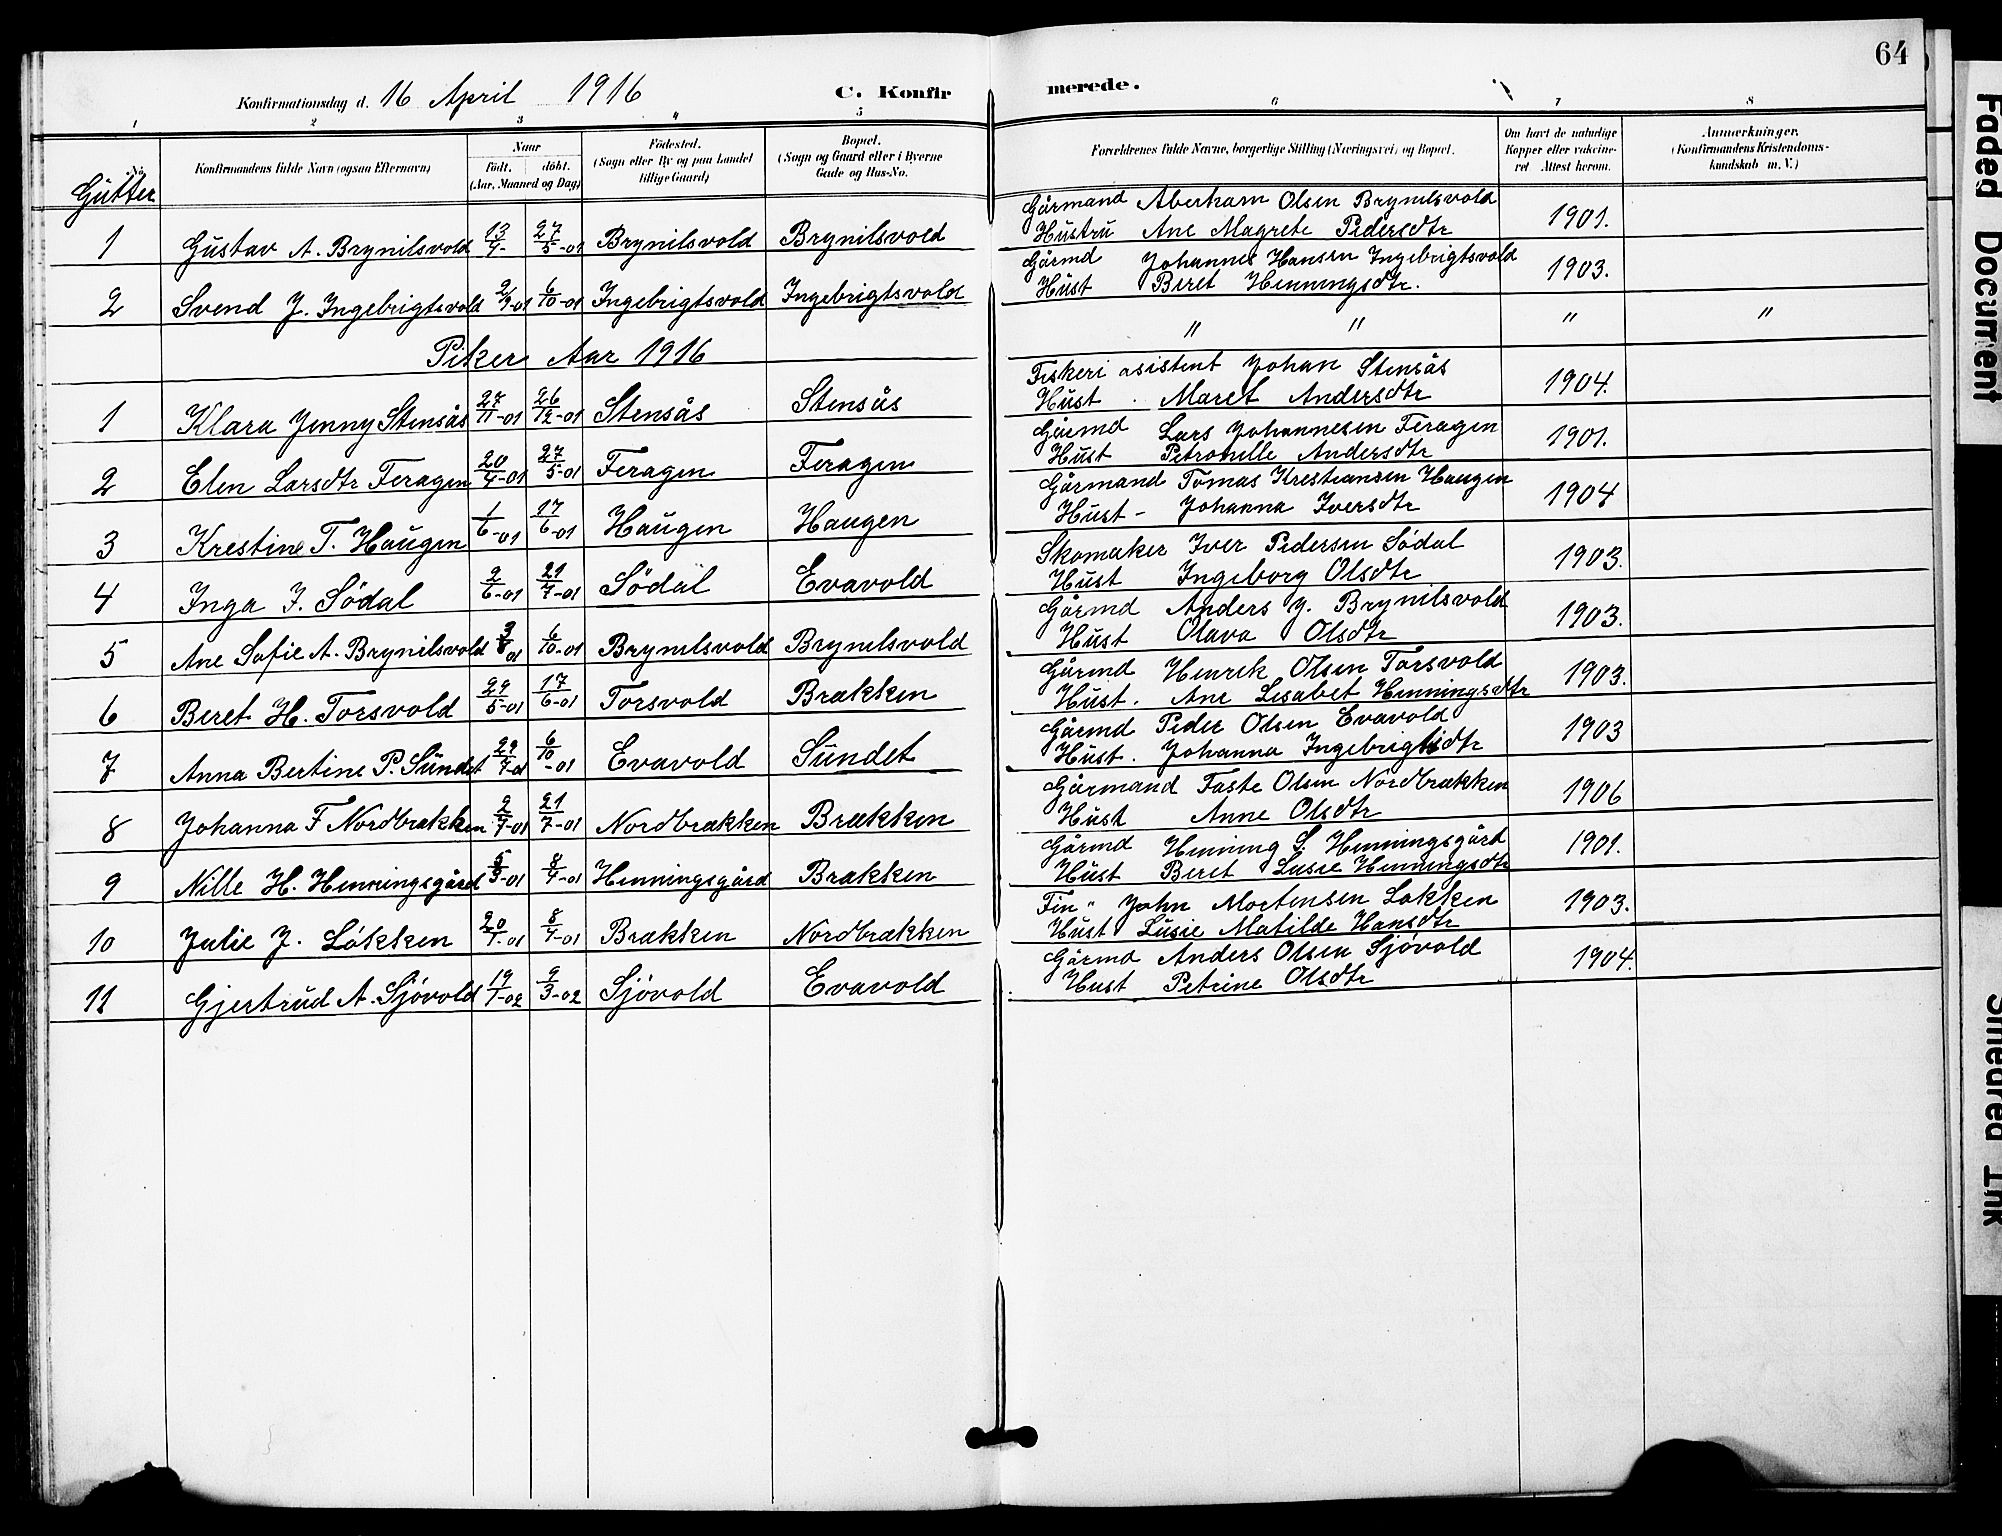 64
Konfirmationsdag d. 16 April 1916 C. Konfirmerede.
1 2 3 4 5 6 7 8
No. Konfirmandens fulde Navn (ogsaa Efternavn) Naar Födt. döbt. (Aar, Maaned og Dag) Födested. (Sogn eller By og paa Landet tillige Gaard) Bopæl. (Sogn og Gaard eller i Byerne Gade og Hus-No. Forældrenes fulde Navne, borgerlige Stilling (Næringsvei) og Bopæl. Om havt de naturlige Kopper eller vakcineret Attest herom. Anmærkninger. (Konfirmandens Kristendomskundskab m. V.)
Gütter
1 Güstav A. Brynilsvold 13/4- 27/5-01 Brynilsvold Brynilsvold Gårmand Aberham Olsen Brynilsvold 1901.
Hüstrü Ane Magrete Pedersdtr
2 Svend J. Ingebrigtsvold 2/9-01 6/10-01 Ingebrigtsvold Ingebrigtsvold Gårmd Johannes Hansen Ingebrigtsvold 1903.
Hüst Beret Henningsdtr.
Piker Aar 1916 " " " "
1 Klara Jenny Stensås 27/11-01 26/12-01 Stensås Stensås Fiskeri asistent Johan Stensås 1904.
Hüst. Maret Andersdtr
2 Elen Larsdtr Feragen 20/4-01 27/5-01 Feragen Feragen Gårmd Lars Johannesen Feragen 1901.
Hüst Petronelle Andersdtr
3 Krestine T. Haügen 1/6-01 17/6-01 Haügen Haugen Gårmand Tomas Krestiansen Haugen 1904
Hüst- Johanna Iversdtr
4 Inga I. Södal 2/6-01 21/7-01 Södal Evavold Skomaker Iver Pedersen Södal 1903.
Hüst Ingeborg Olsdtr
5 Ane Sofie A. Brynilsvold 3/8 01 6/10-01 Brynilsvold Brynilsvold Gårmd Anders J. Brynilsvold 1903.
Hüst Olava Olsdtr
6 Beret H. Torsvold 29/5-01 17/6-01 Torsvold Brækken Gårmd Henrik Olsen Torsvold 1903.
Hüst. Ane Lisabet Henningsdtr
7 Anna Bertine P. Sündet 6/10-01 Evavold Sündet Gårmd Peder Olsen Evavold 1903
Hüst. Johanna Ingebrigtsdtr
8 Johanna F Nordbrækken 2/7-01 21/7-01 Nordbrækken Brækken Gårmand Faste Olsen Nordbrækken 1906
Hüst Anne Olsdtr
9 Nille H. Henningsgård 5/3-01 8/4-01 Henningsgård Brækken Gårmd Henning S. Henningsgård 1901.
Hüst Beret Lusie Henningsdtr
10 Julie J. Lökken 20/1-01 8/4-01 Brækken Nordbrækken Fin " John Mortensen Løkken 1903.
Hüst Lüsie Matilde Hansdtr
11 Gjertrüd A. Sjövold 19/1-02 9/3-02 Sjövold Evavold Gårmd Anders Olsen Sjövold 1904.
Hust Petrine Olsdtr
Faded Document
Smeared Ink